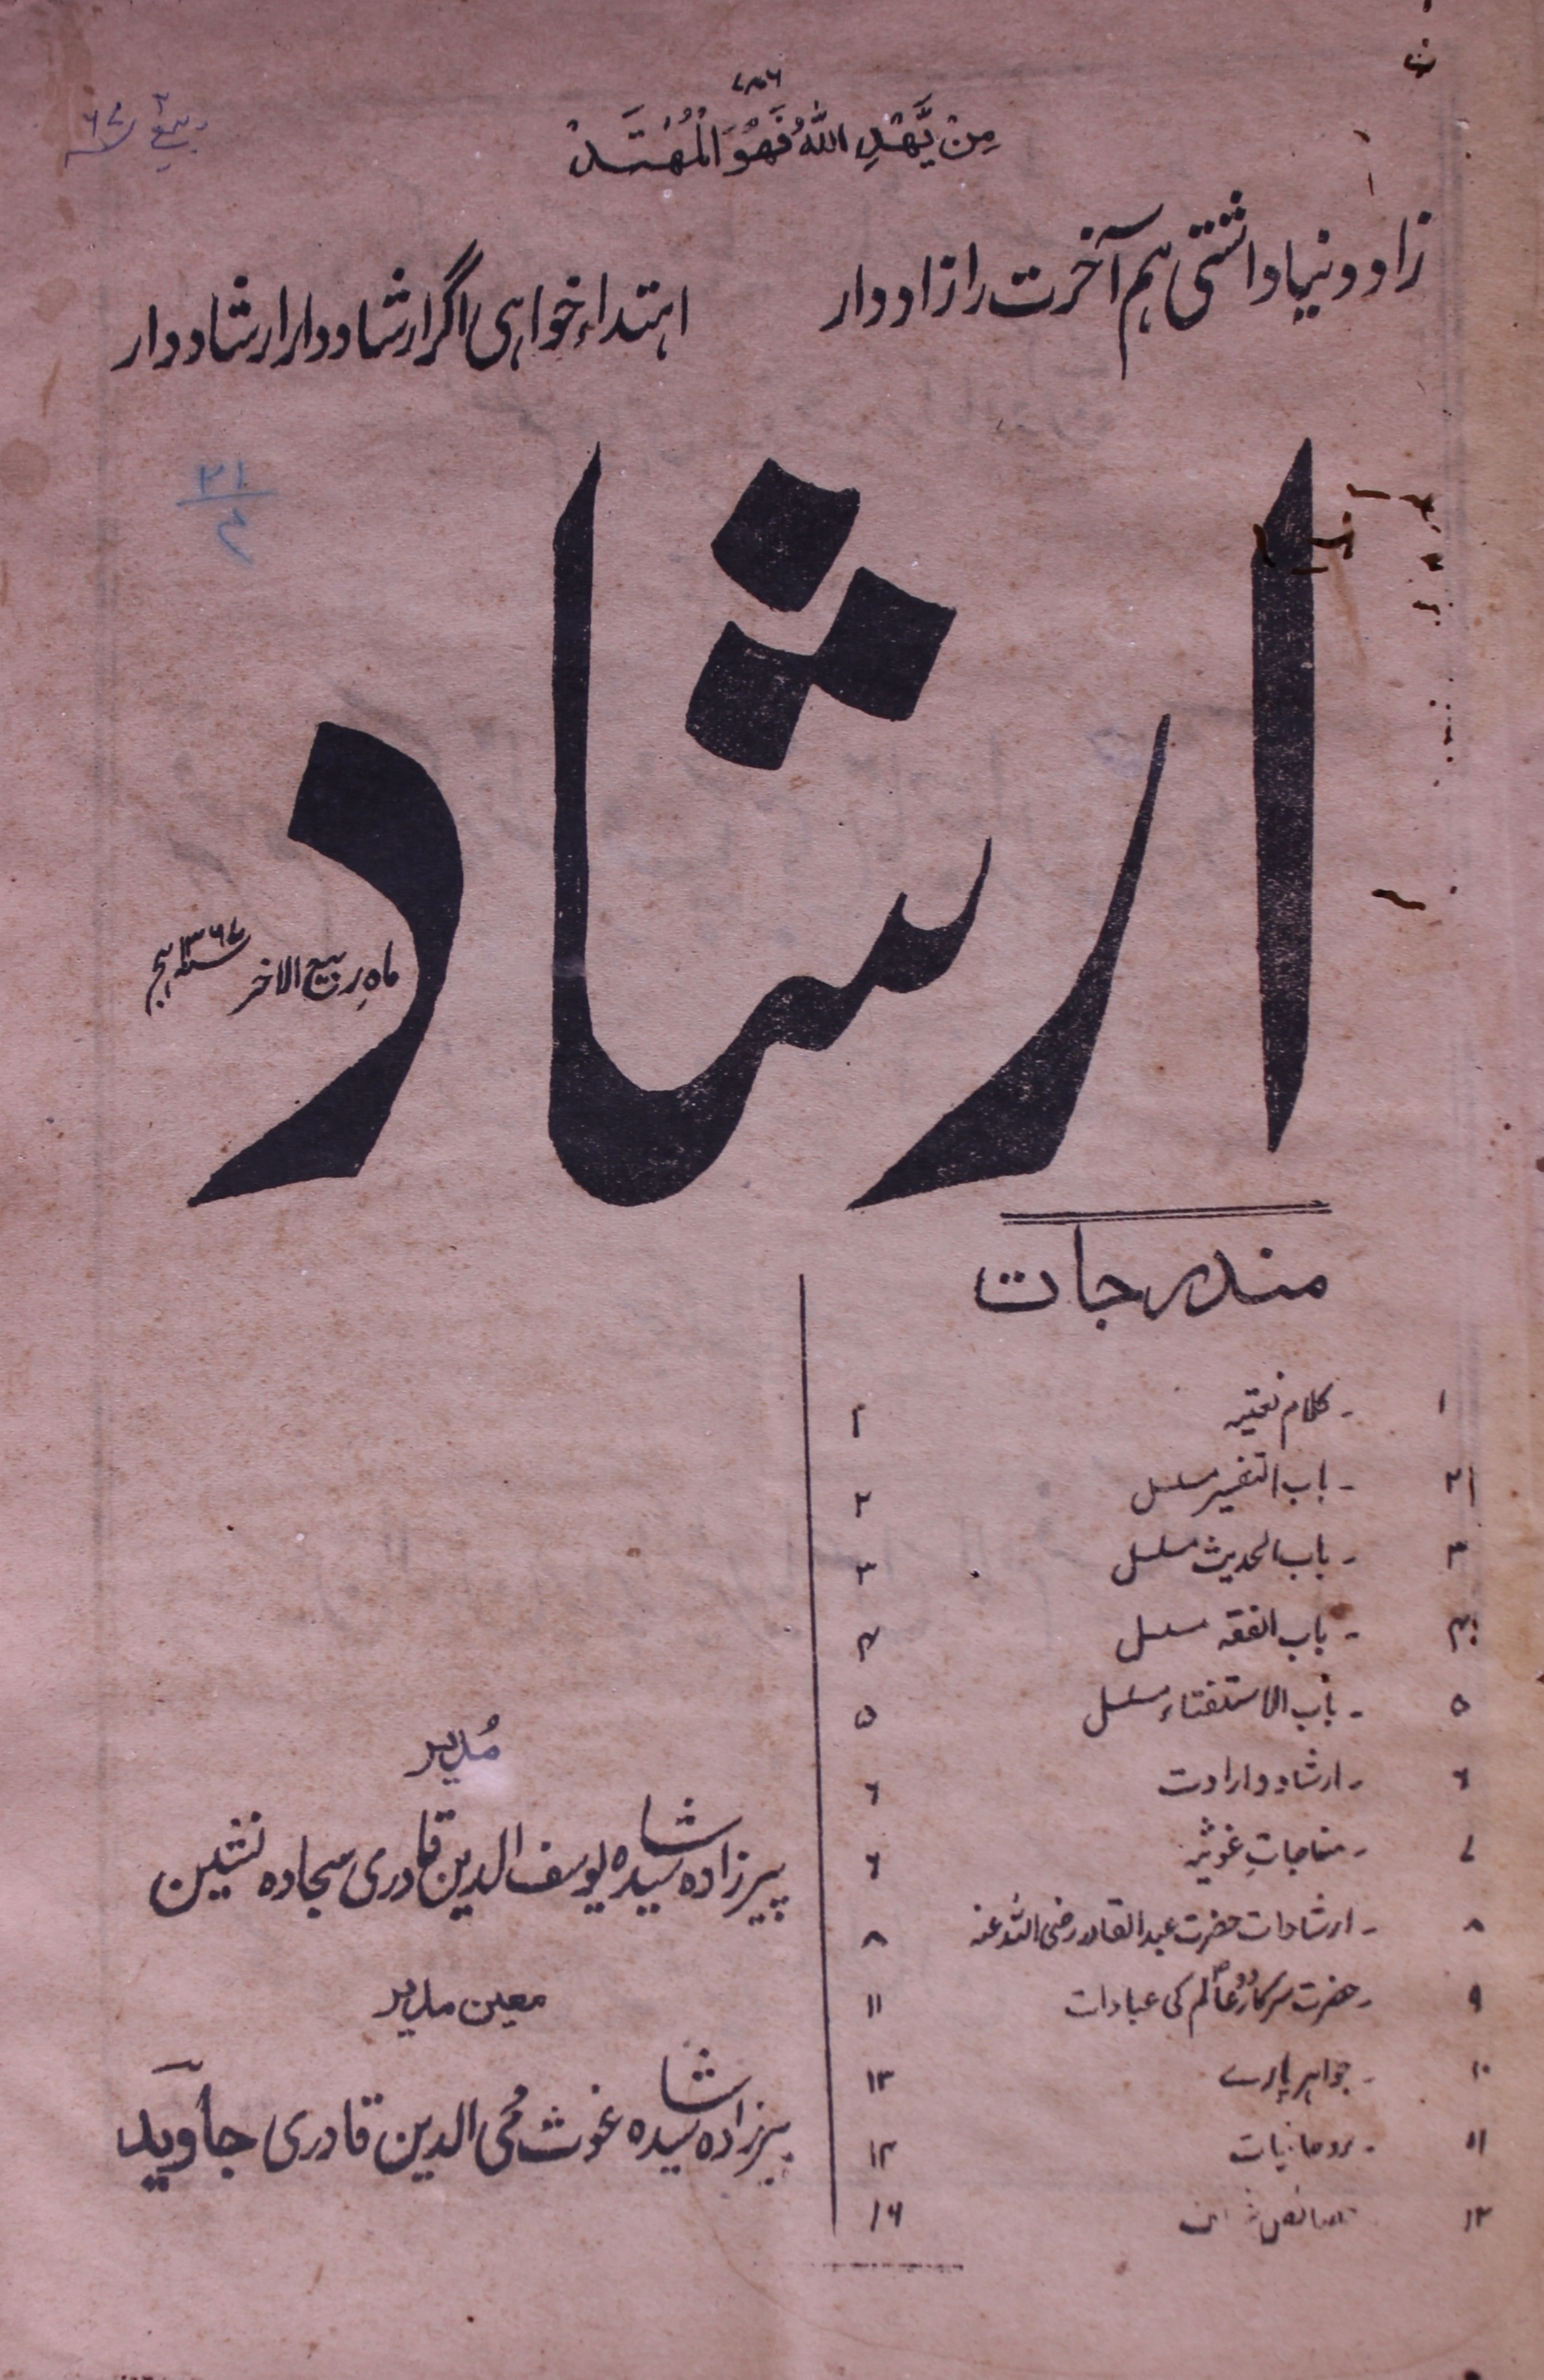 ۷۸۶
مِنْ يَّهْدِ اللّٰهُ فَهُوَ الْمُهْتَدْ
زاد دنیا داشتی ہم آخرت را زاد دار
اہتداء خواہی اگر ارشاد دار ارشاد دار
۲۱
۴
ارشاد
ماہِ ربیع الاخر ۱۳۶۷ ہج
مندرجات
۱ ۔ کلام نعتیہ ۲
۲ ۔ باب التفسیر مسلسل ۲
۳ ۔ باب الحدیث مسلسل ۳
۴ ۔ باب الفقہ مسلسل ۴
۵ ۔ باب الاستفتاء مسلسل ۵
۶ ۔ ارشاد و ارادت ۶
۷ ۔ مناجاتِ غوثیہ ۶
۸ ۔ ارشادات حضرت عبدالقادر رضی اللہ عنہ ۸
۹ ۔ حضرت سرکار دو عالم کی عبادات ۱۱
۱۰ ۔ جواہر پارے ۱۳
۱۱ ۔ روحانیات ۱۴
۱۲ ۱۶
مُدیر
پیرزادہ سید شاہ یوسف الدین قادری سجادہ نشین
معین مدیر
پیرزادہ سید شاہ غوث محی الدین قادری جاوید